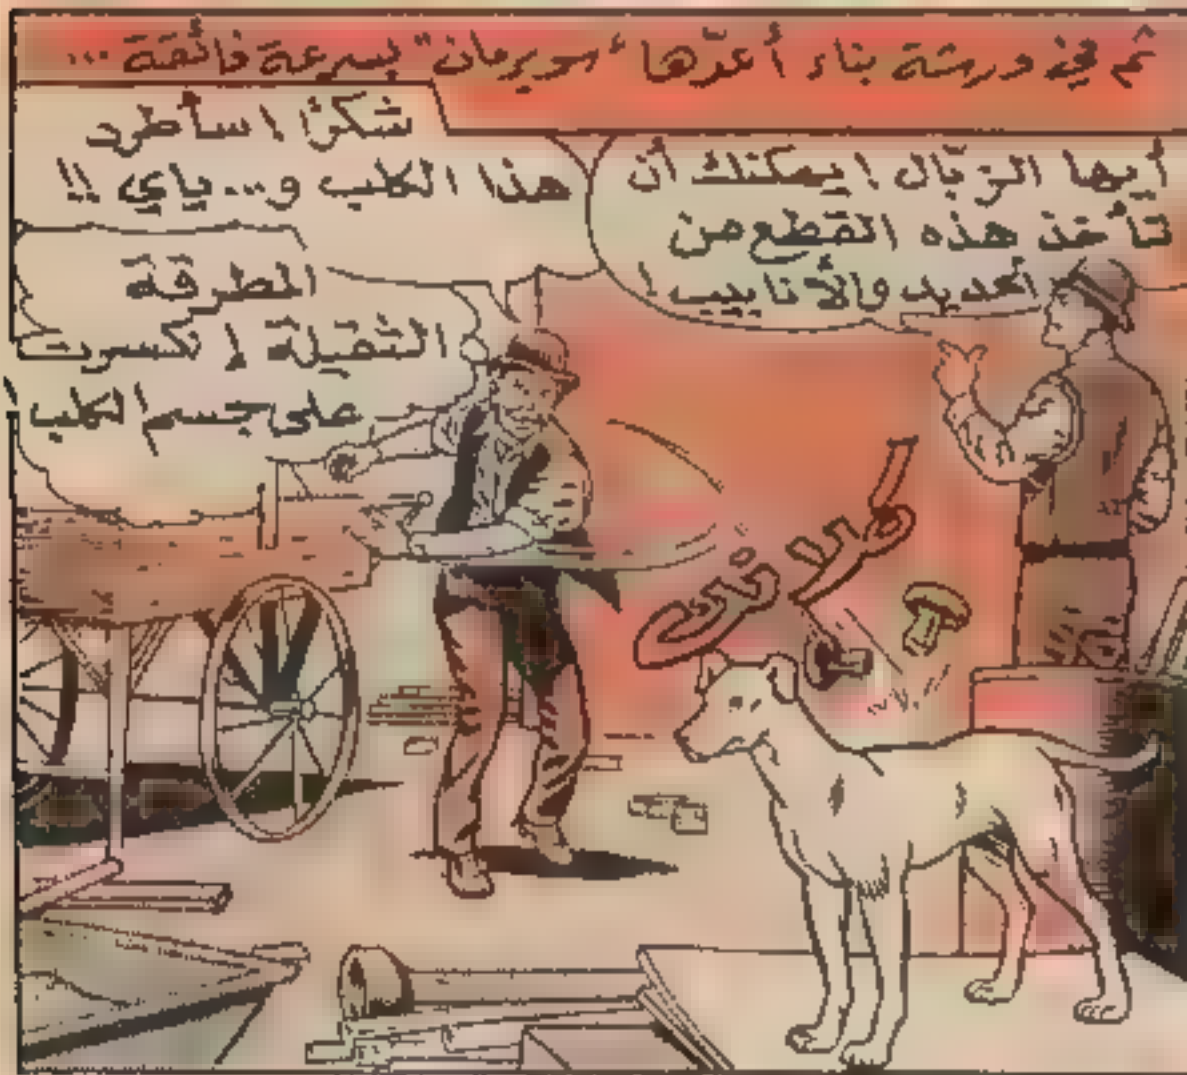 ثم في ورشة بناء أعدّها "سوبرمان" بسرعة فائقة ...
أيها الزبّال ! يمكنك أن
تأخذ هذه القطع من
الحديد والأنابيب !
شكرًا ! سأطرد
هذا الكلب و... ياي !!
المطرقة
الثقيلة إنكسرت
على جسم الكلب !